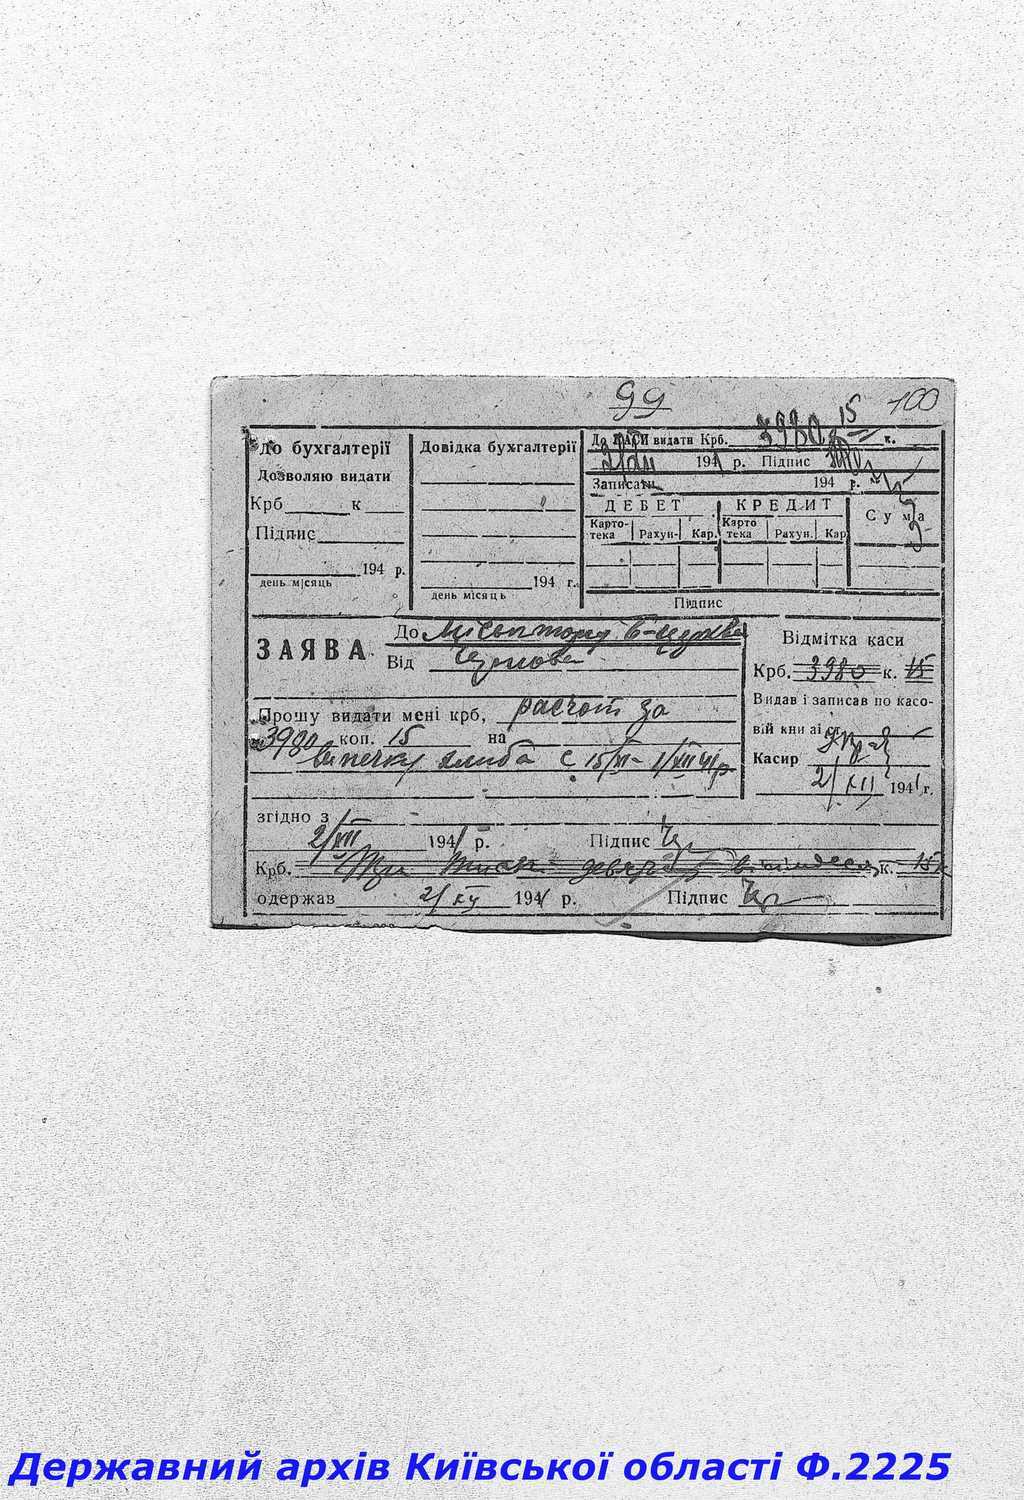 99 100
До бухгалтерії
Дозволяю видати
Крб к
Підпис
194 р.
день місяць
Довідка бухгалтерії
194 г.
день місяць
До КАСИ видати Крб. 3980 15 к.
2/XII 1941 р. Підпис
Записати 194 р.
ДЕБЕТ КРЕДИТ Сума
Карто-тека Рахун- Кар. Карто тека Рахун. Кар
Підпис
ЗАЯВА
До Місьпторгу Б-Церква
Від
Прошу видати мені крб, расчот за
3980 коп. 15 на
випечку хліба с 15/XI - 1/XII 41 р
Відмітка каси
Крб. 3980 к. 15
Видав і записав по касо-
вій кни зі ст.
Касир
2/XII 1941 г.
згідно з
2/XII 1941 р. Підпис
Крб. Три тисячі девятсот вісімдесят к. 15 к
одержав 2/XII 1941 р. Підпис
Державний архів Київської області Ф.2225